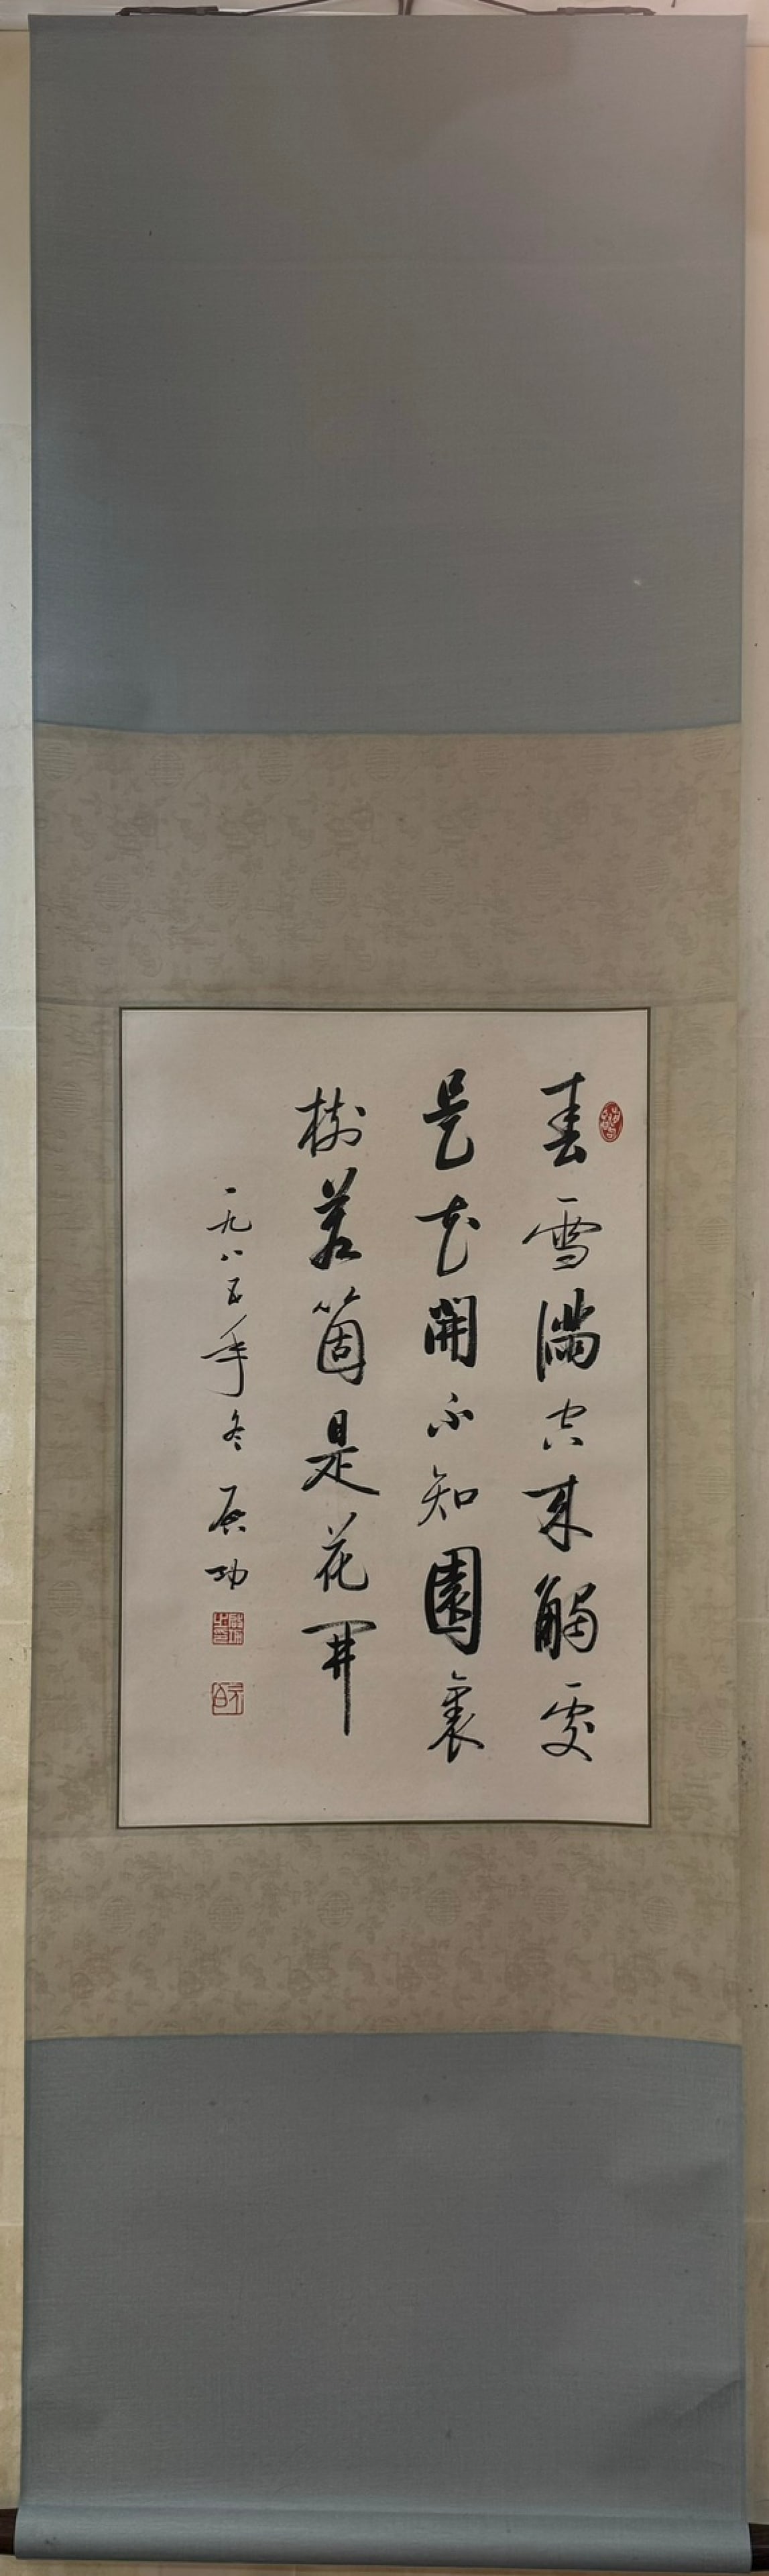 春雪满空来觸處
是花開不知園裏
樹若箇是花開
一九八五年冬 启功